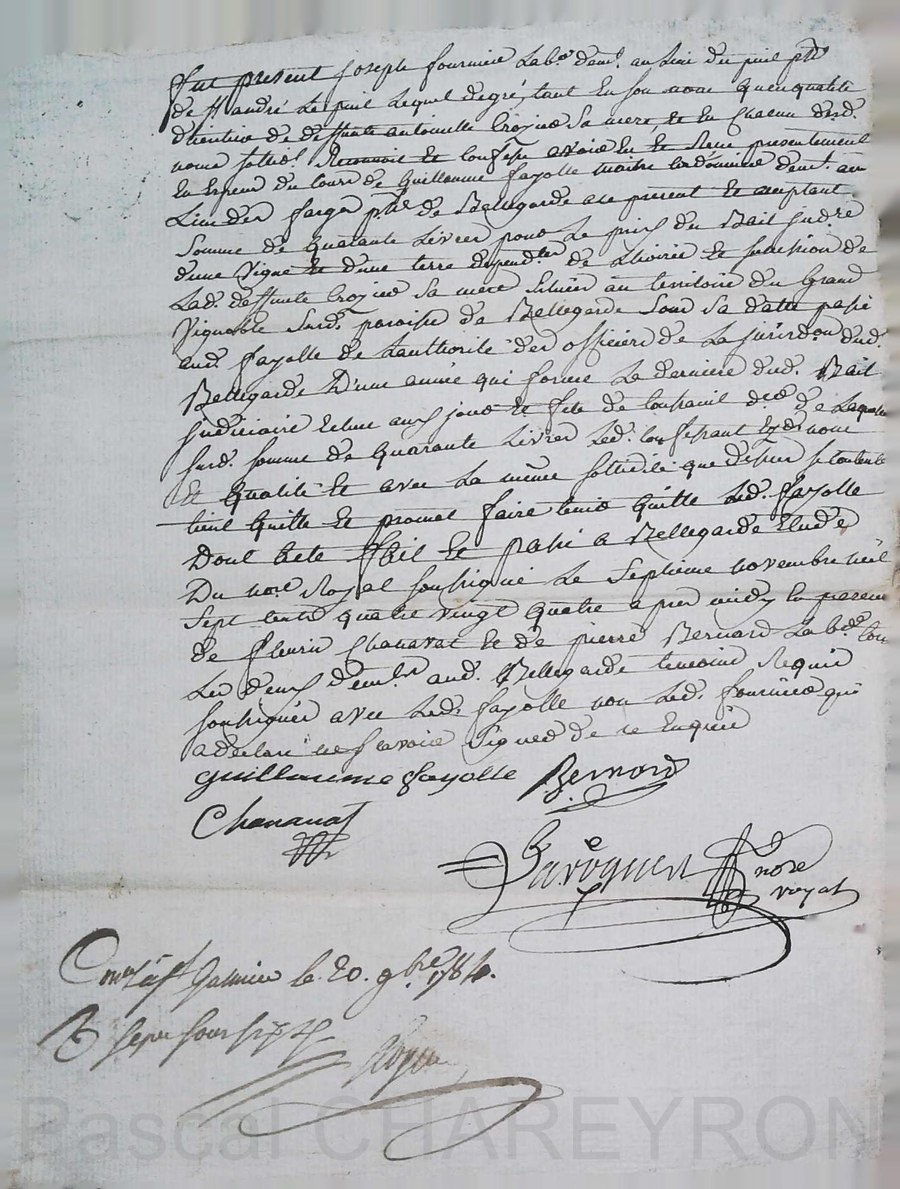 fut present joseph fournier Labr demt. au lieu du puil psse
de St andré Le puil Lequel degré, tant En son nom quen qualité
dheritier de deffunte antoinette Crozier Sa mere, et en chacun desd.
noms sollid. Reconnoit et Confesse avoir Eu et Receu presentement
En Especes du Cours de Guillaume fayolle maitre Cordonnier demt. au
Lieu des farges psse de Bellegarde icy present et acceptant
Somme de quarante Livres pour Le prix du Bail jud.re
dune Vigne et dune terre dependtes de Lhoirie et Succession de
Lad. deffunte Crozier Sa mere Scituées au territoire du Grand
Vignoble Surd. paroisse de Bellegarde Sous Sa datte passé
aud. fayolle de Lauthorité des officiers de La jurisdon dud.
Bellegarde D'une année qui forme La derniere dud. Bail
judiciaire Echue aux jour et fete de toussaint der de Laquelle
surd. somme de quarante Livres Led. Confessant Esd. noms
et qualité et avec La même sollidité que dessus se Contente
tient quitte et promet faire tenir quitte Led. fayolle
Dont acte fait et passé a Bellegarde Etude
Du nore Royal soussigné Le Septieme novembre mil
Sept cents quatre vingt quatre apres midy En presence
de fleurie Chanavat et de pierre Bernard Labrs tous
Les deux demts aud. Bellegarde temoins Requis
soussignés avec Led. fayolle non Led. fournier qui
a declaré ne sçavoir Signer de ce Enquis
guillaume fayolle Bernord
Chanavat
nore
royal
Conlé à St Galmier le 20. 9bre 1784.
Pascal CHAREYRON